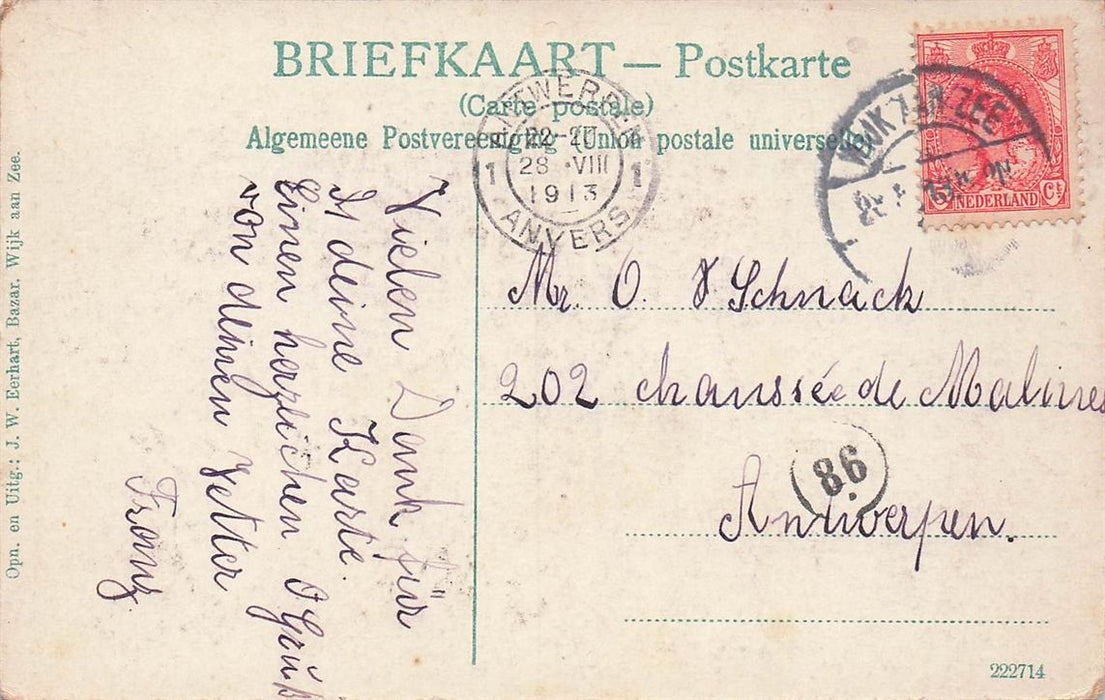 BRIEFKAART — Postkarte
(Carte postale)
Algemeene Postvereeniging (Union postale universelle)
ANTWERPEN
1 28 VIII 1
1913
ANVERS
WIJK AAN ZEE
5 Ct
NEDERLAND
Vielen Dank für
deine Karte.
Einen herzlichen Gruß
von deinen Vetter
Franz
Mr. O. Schnack
202 chaussée de Malines
Antwerpen.
86
Opn. en Uitg.: J. W. Eerhart, Bazar. Wijk aan Zee.
222714